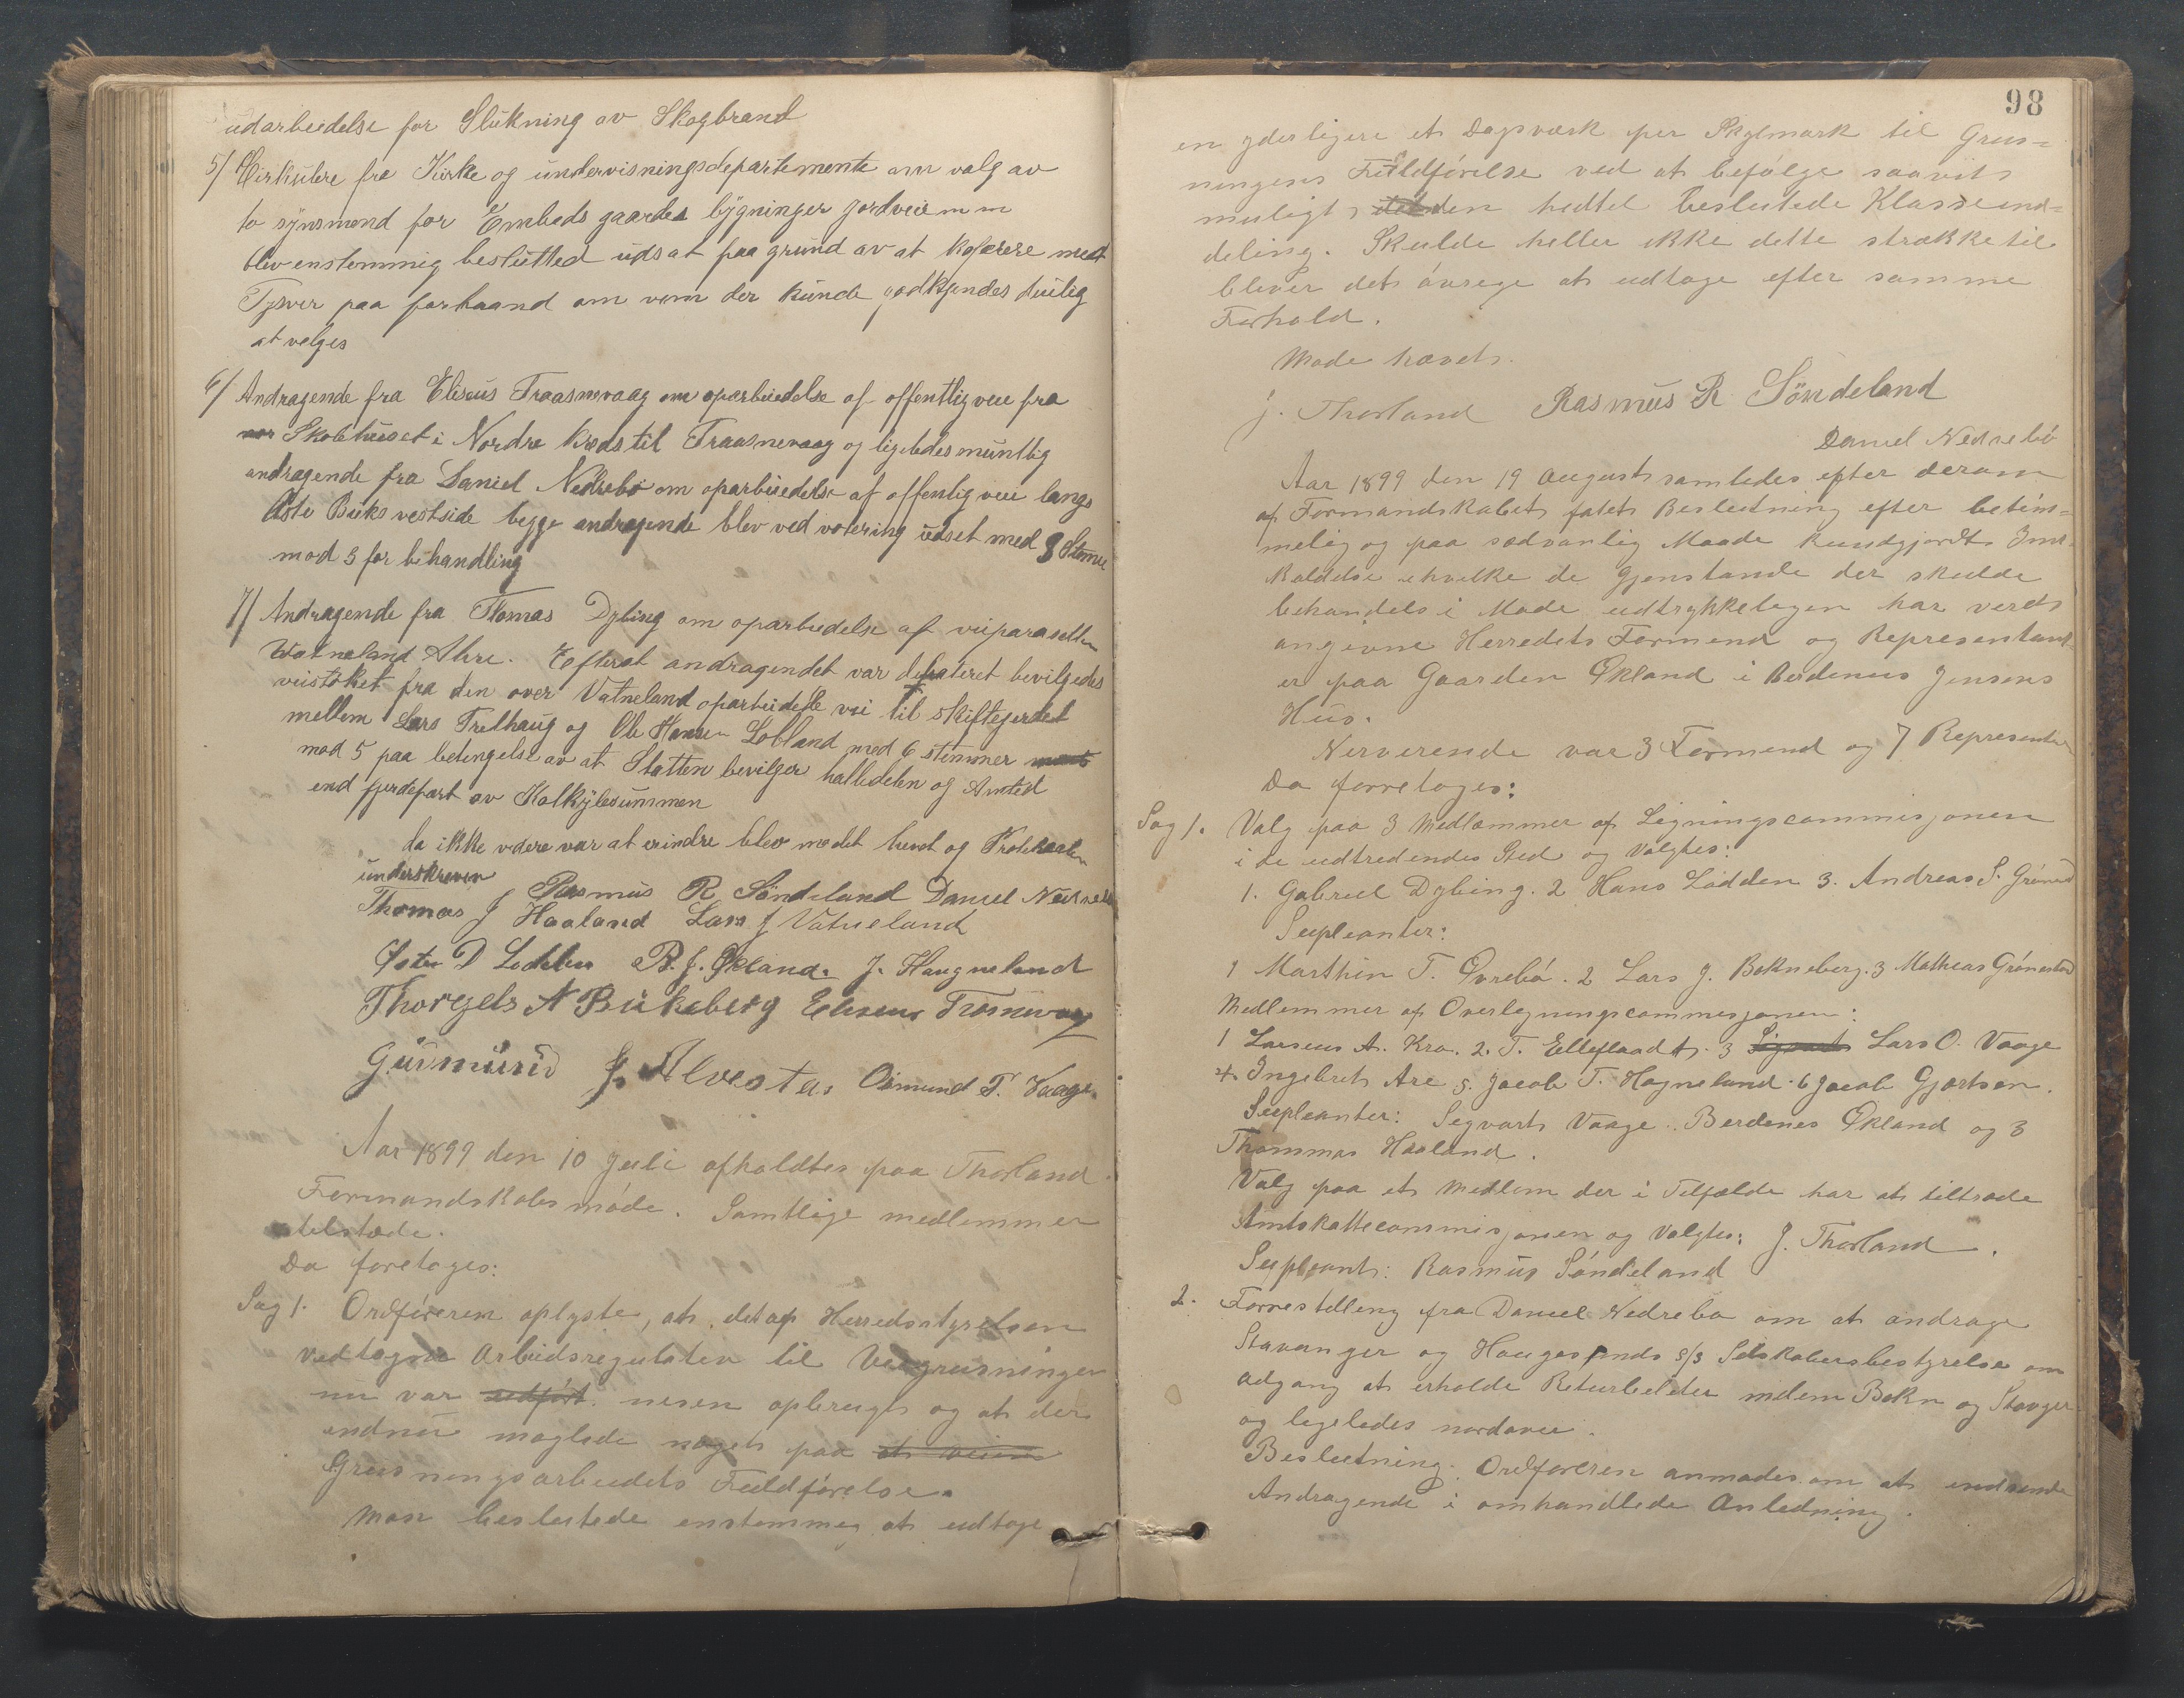 udarbeidelse for Slukning av Skogbrand
5/ Cirkulere fra Kirke og undervisningsdepartemente om valg av
to synsmend for Embeds gaardes bygninger jordveie m m
blev enstemmig beslutted udsat paa grund av at koferere med
Tysver paa forhaand om vem der kunde godkjendes duelig
at velges
6/ Andragende fra Eliseus Traasnevaag om oparbeidelse af offentlig veie fra
Skolehuset i Nordre kreds til Traasnevaag og ligeledes muntlig
andragende fra Daniel Nedrebø om oparbeidelse af offenlig veie langs
Øste Buks vestside begge andragende blev ved votering udset med 8 Stemer
mod 3 for behandling
7/ Andragende fra Thomas Dybing om oparbeidelse af veiparasellen
Vatneland Are. Efterat andragendet var debateret bevilgedes
veistøket fra den over Vatneland oparbeidede vei til skiftegjerdet
mellem Lars Trelhaug og Ole Hansen Lobland med 6 stemmer
mod 5 paa betingelse av at Statten bevilger halvdelen og Amted
end fjerdepart av Kalkylesummen
da ikke videre var at erindre blev mødet hevet og Protokollen
underskreven
Rasmus R Söndeland Daniel Nedrebø
Thomas J Haaland Lars J Vatneland
Østen D Lodden B. J. Økland. J. Haugneland
Thorgels N Bukeberg Eliseus Trosnevag
Gunmund J. Alvestad Osmund T. Vaage.
Aar 1899 den 10 Juli afholdtes paa Thorland
Formandskabsmöde. Samtlige medlemmer
tilstæde.
Da foretoges:
Sag 1. Ordföreren oplyste, at det af Herredsstyrelsen
vedtagne Arbeidsregulativ til Veigrusningen
nu var udfört. nesen opbrugt og at der
endnu manglede noget paa at veien
Grusningsarbeidets Fuldförelse.
Man besluttede enstemmig at udtage
98
en yderligere et Dagsværk per Skylmark til Grus=
ningens Fuldförelse ved at befölge saavit
muligt den hidtil besluttede Klasseind=
deling. Skulde heller ikke dette strække til
bliver det övrege at udtage efter samme
Forhold.
Möde hævet.
J. Thorland Rasmus R Söndeland
Daniel Nedrebö
Aar 1899 den 19 August samledes efter derom
af Formandskabet fatet Beslutning efter betim=
melig og paa sedvanlig Maade kundgjordt Ind-
kaldelse i hvilke de Gjenstande der skulde
behandels i Möde udtrykkelegen har verdt
angivne Herredets Formend og Representant
er paa Gaarden Økland i Berdenius Jensens
Hus.
Nerverende var 3 Formend og 7 Representer
Da forretoges:
Sag 1. Valg paa 3 Medlemmer af Ligningscommisjonen
i de udtredendes Sted og Valgtes:
1. Gabriel Dybing. 2 Hans Lödden 3. Andreas S. Grönest
Supleanter:
1 Marthin T. Övrebö. 2 Lars J. Bokneberg. 3 Mathias Grönestad
Medlemmer af Overlegningscommisjonen:
1 Larseus A. Kro. 2. T. Elleflaadt. 3 Sigvart Lars O. Vaage
4 Ingebret Are 5. Jacob T. Hogneland. 6 Jacob Gjortsen.
Supleanter: Segvart Vaage. Berdenes Økland og 3
Thommas Haaland.
Valg paa et Medlem der i Tilfælde har at tiltræde
Amtskattecommisjonen og Valgtes: J. Thorland.
Supleant: Rasmus Söndeland
2. Forrestilleng fra Daniel Nedrebö om at andrage
Stavanger og Haugesunds S/S Selskabersbestyrelse om
adgang at erholde Returbeletter melem Bokn og Stavger
og legeledes nordover.
Beslutning. Ordföreren anmodes om at indsende
Andragende i omhandlede Anledning.